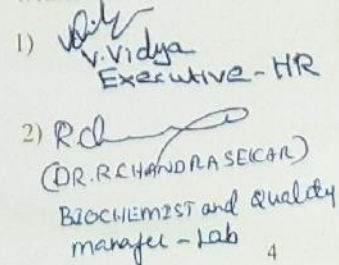 1)
V. Vidya
Executive - HR
2) RCh
(DR. R CHANDRASEKAR)
BIOCHEMIST and Quality
manager - Lab
4